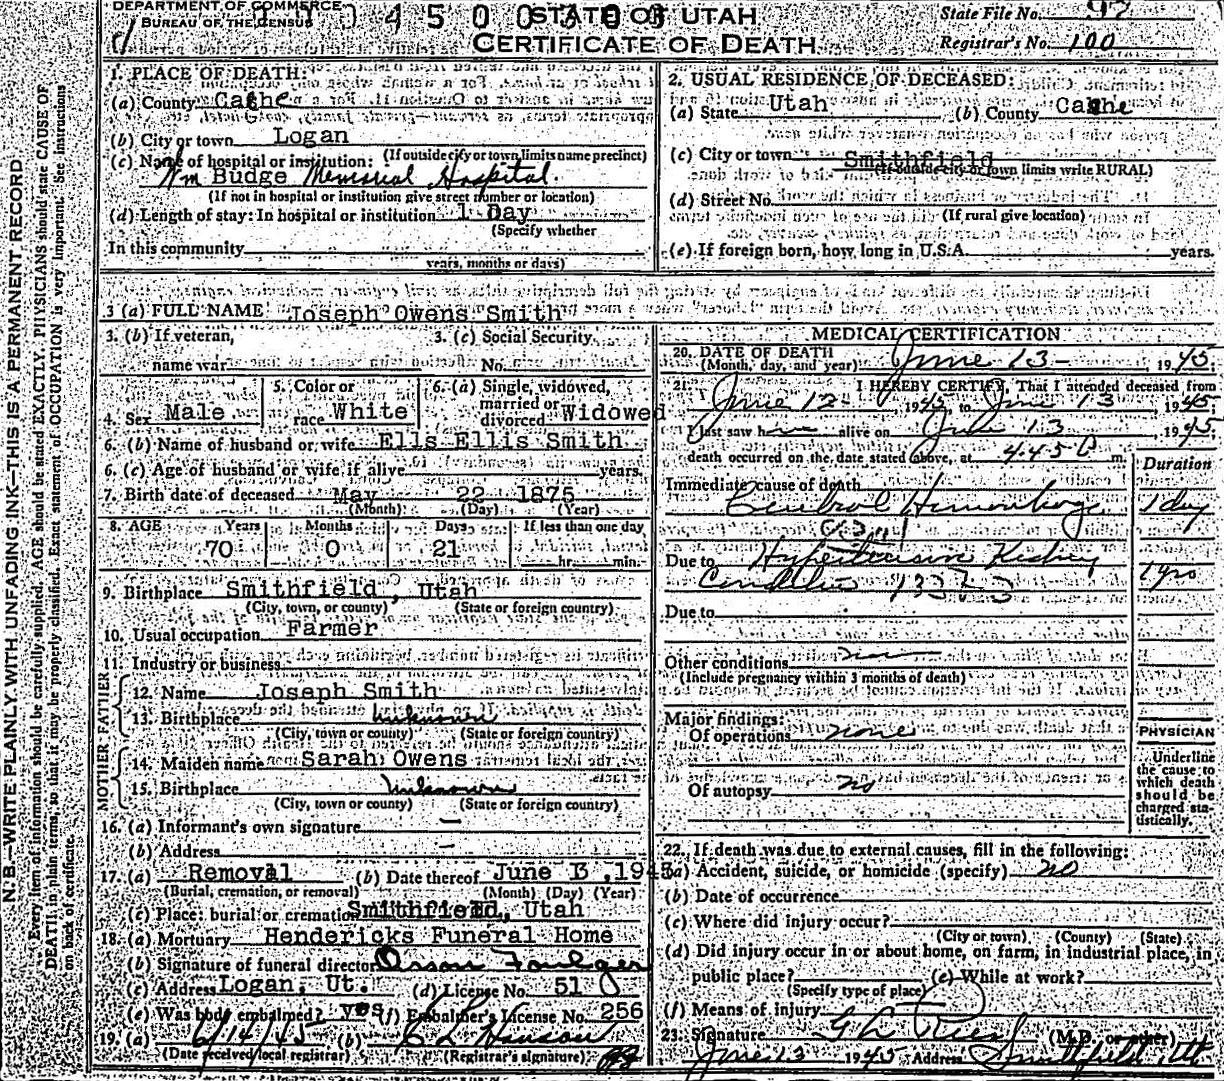 DEPARTMENT OF COMMERCE
BUREAU OF THE CENSUS
STATE OF UTAH
CERTIFICATE OF DEATH
State File No. 97
Registrar's No. 100
N. B.—WRITE PLAINLY, WITH UNFADING INK—THIS IS A PERMANENT RECORD
Every item of information should be carefully supplied. AGE should be stated EXACTLY. PHYSICIANS should state CAUSE OF
DEATH in plain terms, so that it may be properly classified. Exact statement of OCCUPATION is very important. See instructions
on back of certificate.
1. PLACE OF DEATH:
(a) County Cache
(b) City or town Logan
(If outside city or town limits name precinct)
(c) Name of hospital or institution:
Wm Budge Memorial Hospital
(If not in hospital or institution give street number or location)
(d) Length of stay: In hospital or institution 1 Day
(Specify whether
In this community
years, months or days)
2. USUAL RESIDENCE OF DECEASED:
(a) State Utah (b) County Cache
(c) City or town Smithfield
(If outside city or town limits write RURAL)
(d) Street No.
(If rural give location)
(e) If foreign born, how long in U.S.A. years.
3 (a) FULL NAME Joseph Owens Smith
3. (b) If veteran, name war
3. (c) Social Security No.
4. Sex Male
5. Color or race White
6. (a) Single, widowed, married or divorced Widowed
6. (b) Name of husband or wife Ells Ellis Smith
6. (c) Age of husband or wife if alive years.
7. Birth date of deceased May 22 1875
(Month) (Day) (Year)
8. AGE Years Months Days If less than one day
70 0 21 hr. min.
9. Birthplace Smithfield, Utah
(City, town, or county) (State or foreign country)
10. Usual occupation Farmer
11. Industry or business
FATHER
12. Name Joseph Smith
13. Birthplace Unknown
(City, town or county) (State or foreign country)
MOTHER
14. Maiden name Sarah Owens
15. Birthplace Unknown
(City, town or county) (State or foreign country)
16. (a) Informant's own signature —
(b) Address —
17. (a) Removal (b) Date thereof June 13, 1945
(Burial, cremation, or removal) (Month) (Day) (Year)
(c) Place: burial or cremation Smithfield, Utah
18. (a) Mortuary Hendericks Funeral Home
(b) Signature of funeral director Orson Foulger
(c) Address Logan, Ut. (d) License No. 51
(e) Was body embalmed? yes (f) Embalmer's License No. 256
19. (a) 6/14/45 (b) C L Hanson
(Date received local registrar) (Registrar's signature)
MEDICAL CERTIFICATION
20. DATE OF DEATH June 13- 1945
(Month, day, and year)
21. I HEREBY CERTIFY, That I attended deceased from
June 12- 1945 to June 13 1945
I last saw him alive on June 13 1945
death occurred on the date stated above, at 4.45 P m.
Duration
Immediate cause of death
Cerebral Hemorrhage 1 day
Due to Hypertension Kidney
Condition 1 yrs
Due to
Other conditions
(Include pregnancy within 3 months of death)
Major findings:
Of operations none
Of autopsy no
PHYSICIAN
Underline
the cause to
which death
should be
charged sta-
tistically.
22. If death was due to external causes, fill in the following:
(a) Accident, suicide, or homicide (specify) no
(b) Date of occurrence
(c) Where did injury occur?
(City or town) (County) (State)
(d) Did injury occur in or about home, on farm, in industrial place, in
public place? (e) While at work?
(Specify type of place)
(f) Means of injury
23. Signature (M.D. or other)
June 13 1945 Address Smithfield Ut